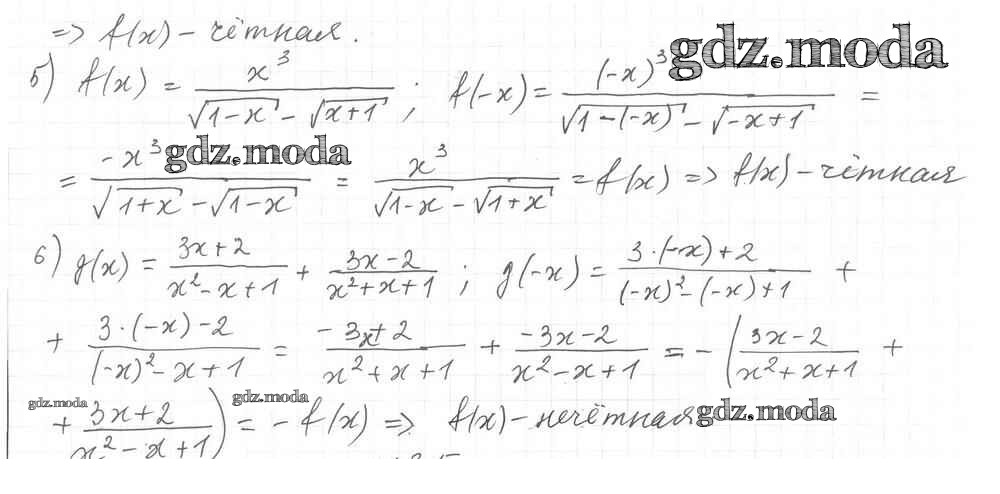 => f(x) – чётная.
gdz.moda
5) f(x) = x³/(√(1-x) - √(x+1)) ; f(-x) = (-x)³/(√(1-(-x)) - √(-x+1)) =
gdz.moda
= -x³/(√(1+x) - √(1-x)) = x³/(√(1-x) - √(1+x)) = f(x) => f(x) – чётная
6) g(x) = (3x+2)/(x²-x+1) + (3x-2)/(x²+x+1) ; g(-x) = (3·(-x)+2)/((-x)²-(-x)+1) +
+ (3·(-x)-2)/((-x)²-x+1) = (-3x+2)/(x²+x+1) + (-3x-2)/(x²-x+1) = -((3x-2)/(x²+x+1) +
gdz.moda
gdz.moda
+ (3x+2)/(x²-x+1)) = -f(x) => f(x) – нечётная
gdz.moda